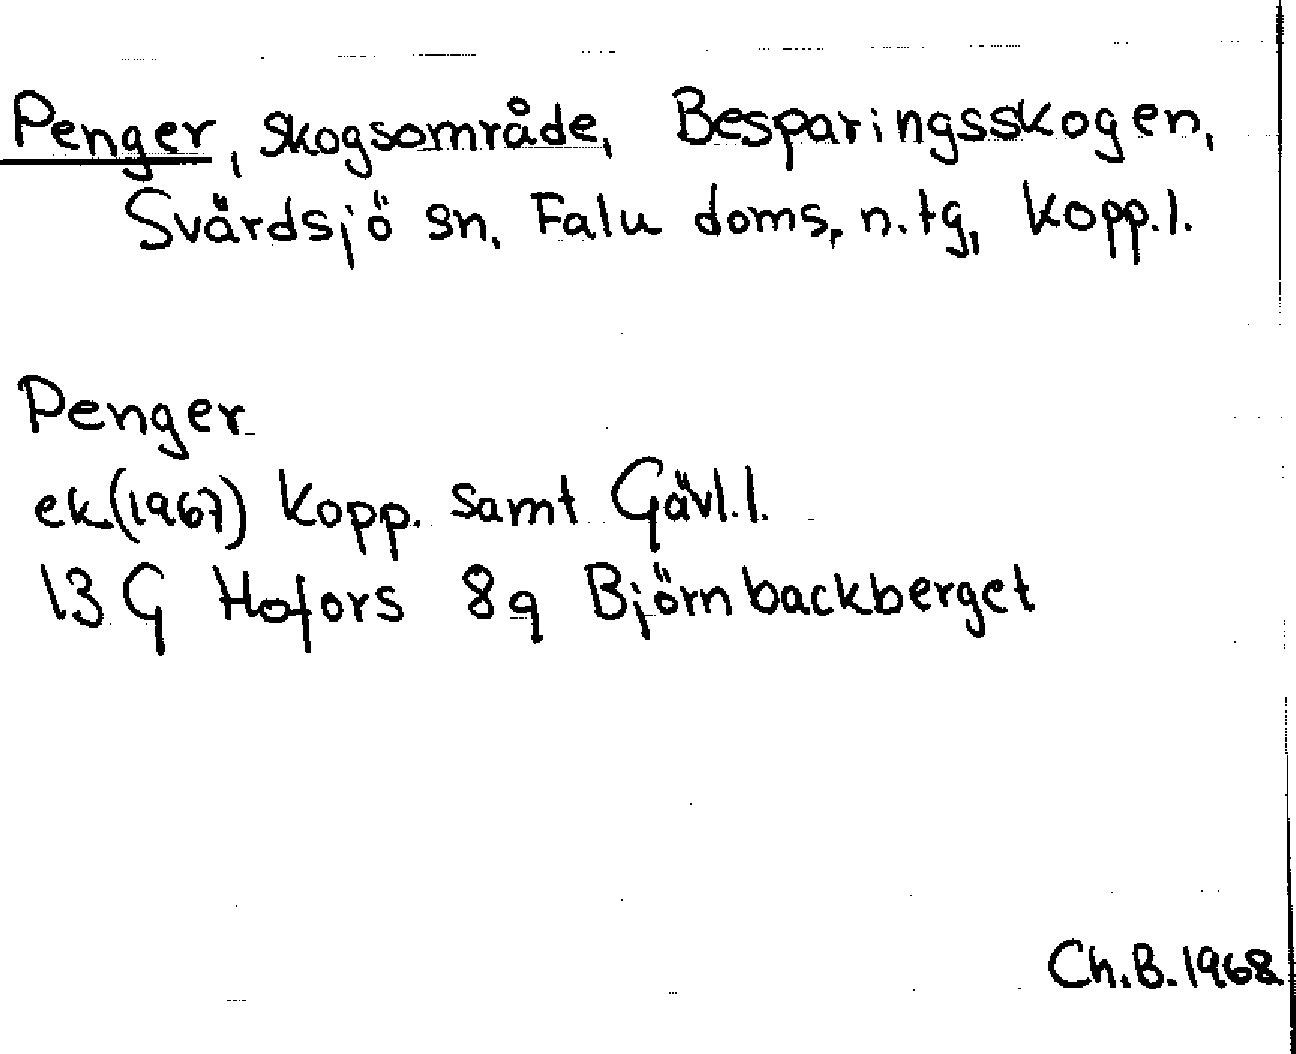 Penger, skogsområde, Besparingsskogen,
Svärdsjö sn, Falu doms, n.tg, Kopp.l.
Penger
ek(1967) Kopp. samt Gävl.l.
13 G Hofors 8g Björnbackberget
Ch.B.1968